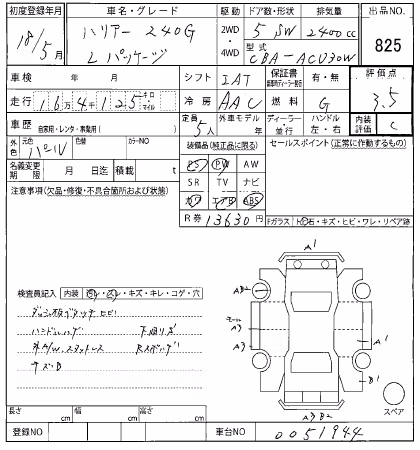 初度登録年月 車名・グレード 駆動 ドア数・形状 排気量 出品NO
18/5月 ハリアー 240G 2WD・4WD 5 SW 2400cc 825
Lパッケージ 型式 CBA-ACU30W
車検 年 月 シフト IAT 保証書 有・無 評価点
走行 16万4千125 キロ マイル 冷房 AAC 燃料 G 3.5
車歴 自家用・レンタ・事業用( ) 定員 5人 外車モデル 年 ディーラー・並行 ハンドル 左・右 内装評価 C
外色 元色 パール 色替 カラーNO 装備品(純正品に限る) セールスポイント(正常に作動するもの)
名義変更期限 月 日迄 積載 t PS PW AW
注意事項(欠品・修復・不具合箇所および状態) SR TV ナビ
カワ エアB ABS
R券 13630円 Fガラス トビ石・キズ・ヒビ・ワレ・リペア跡
A1
検査員記入 内装 コゲ・穴 キズ・キレ
ダッシュ板
ハンドルハゲ 下廻りサビ
外A/W スタットレス
A3
A3
A1
B1
スペア
A3 B2
長さ cm 幅 cm 高さ cm
登録NO 車台NO 0051944